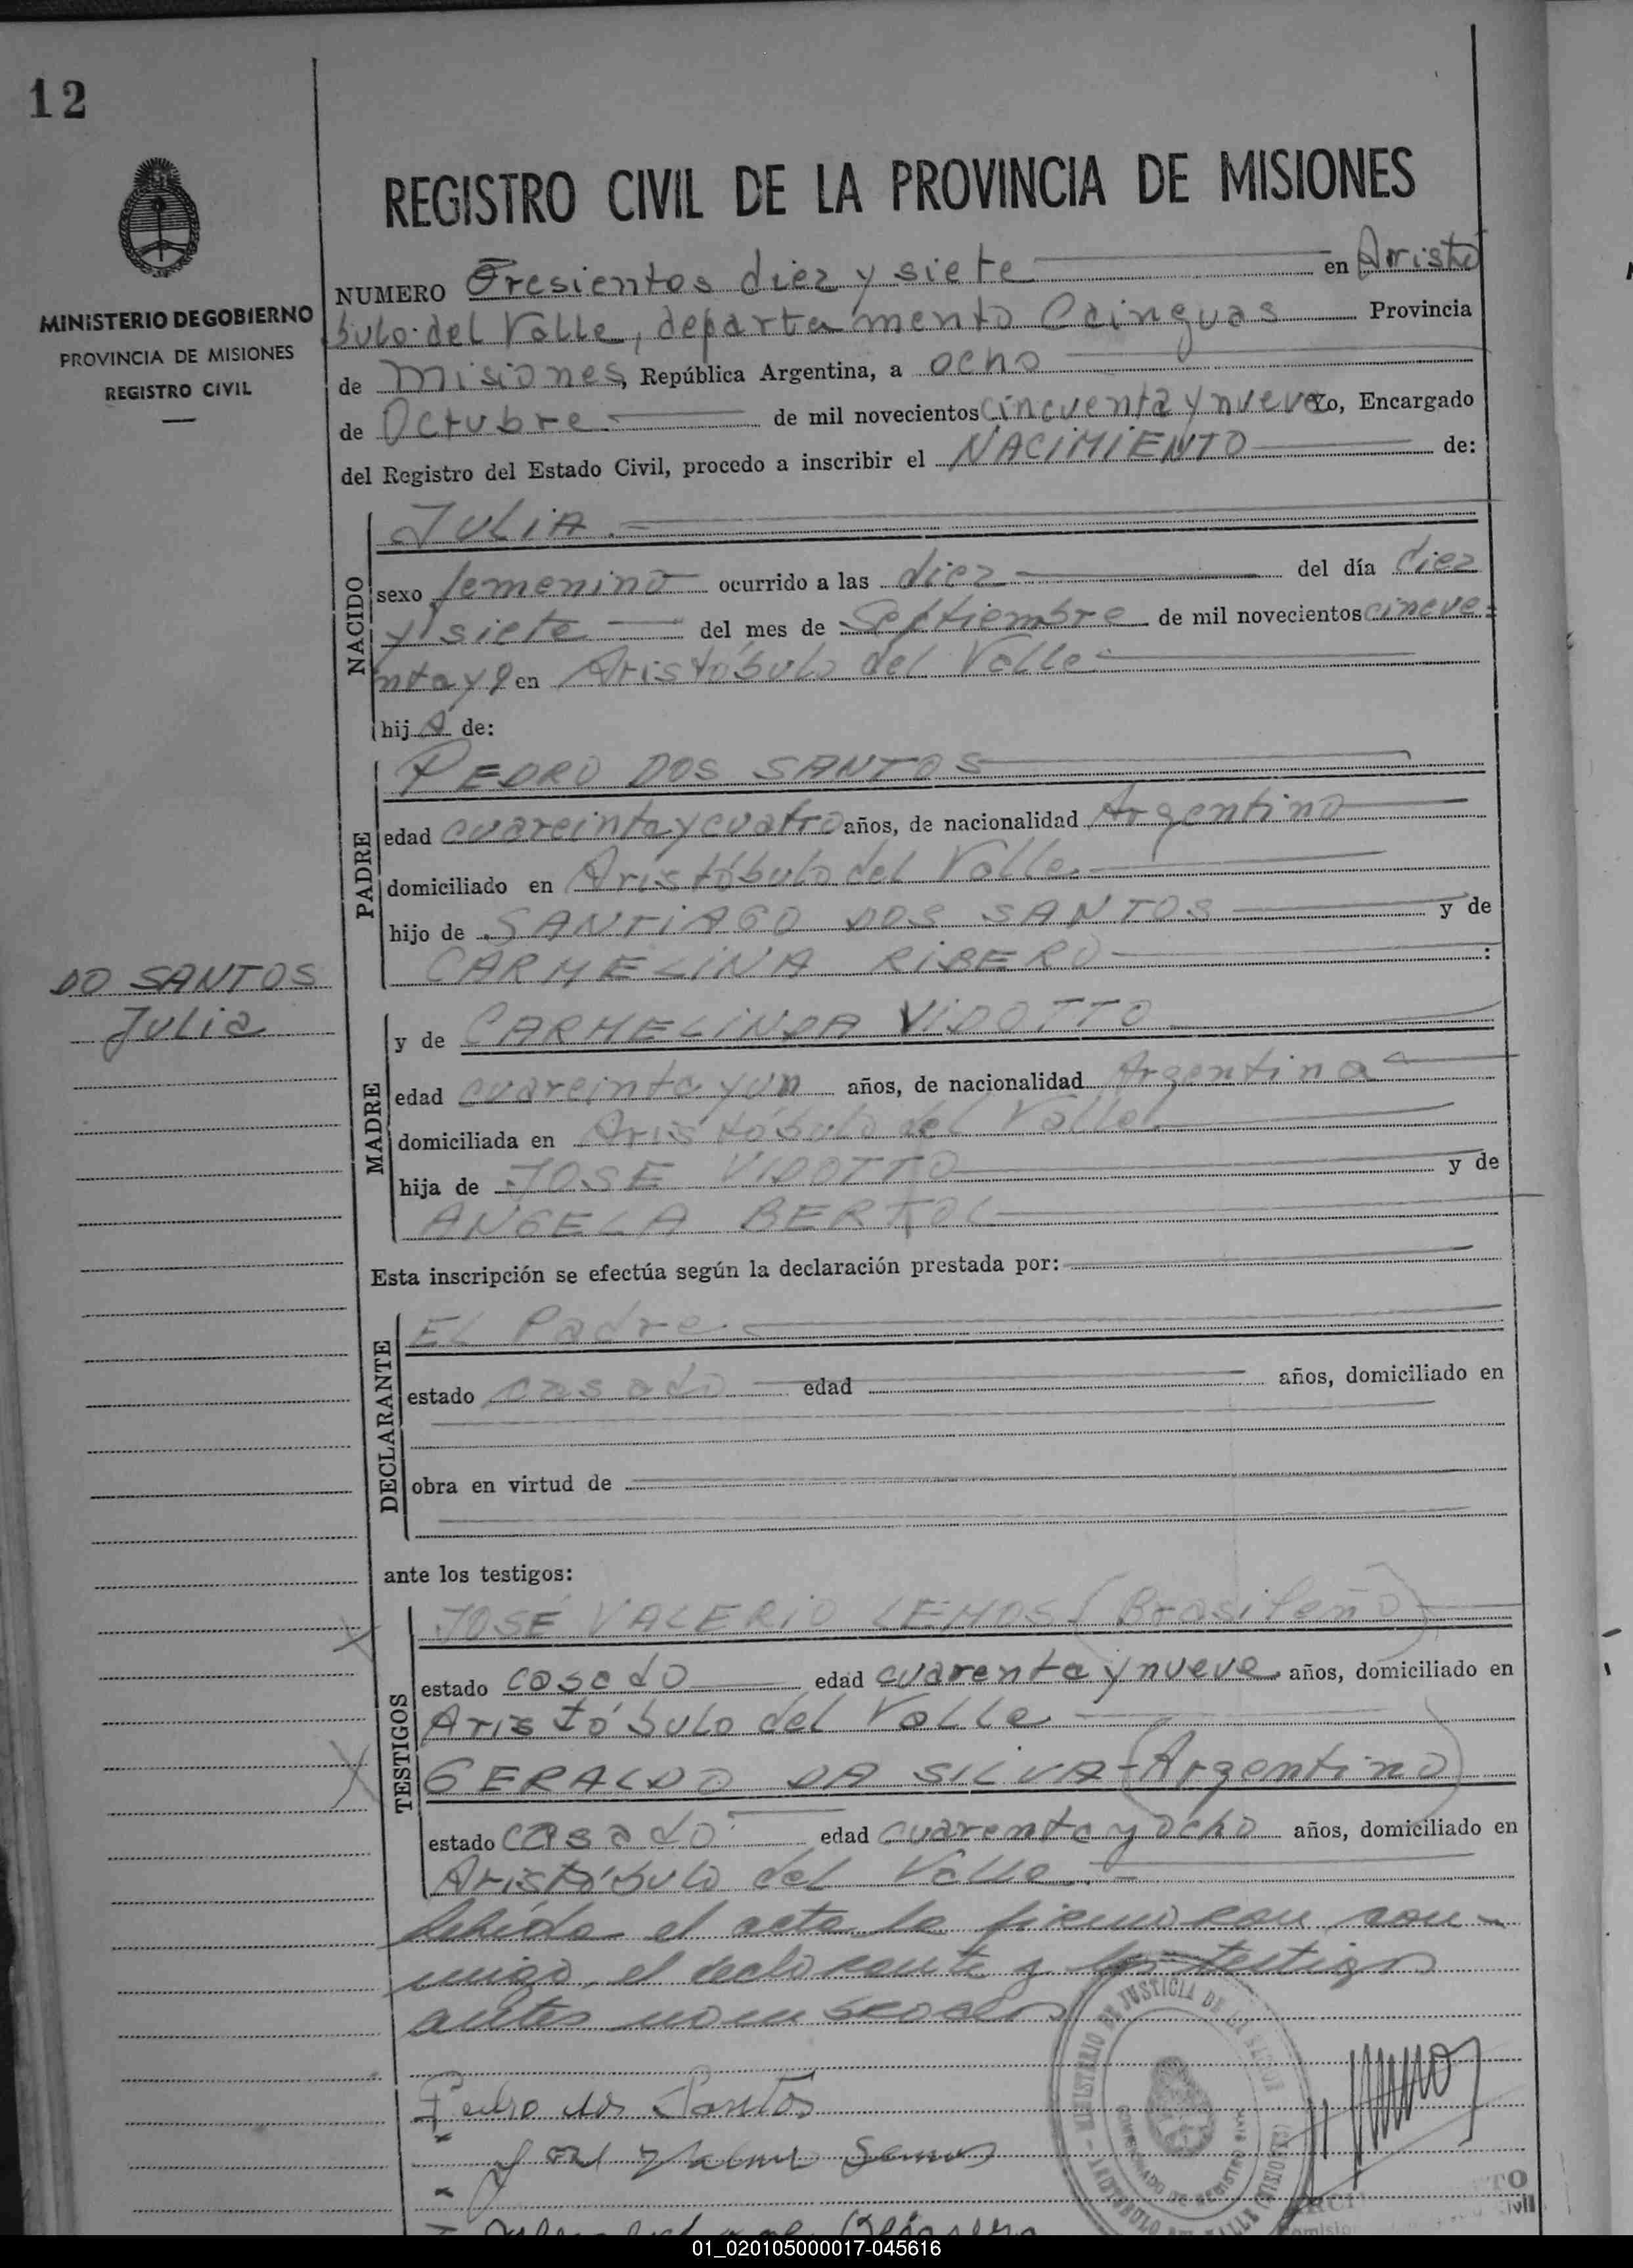 12
REGISTRO CIVIL DE LA PROVINCIA DE MISIONES
MINISTERIO DE GOBIERNO
PROVINCIA DE MISIONES
REGISTRO CIVIL
NUMERO Tresientos diez y siete en Aristó
bulo del Valle, departamento Cainguas Provincia
de Misiones, República Argentina, a ocho
de Octubre de mil novecientos cincuenta y nueve Yo, Encargado
del Registro del Estado Civil, procedo a inscribir el NACIMIENTO de:
NACIDO
JULIA.
sexo femenino ocurrido a las diez del día diez
y siete del mes de Septiembre de mil novecientos cincue-
nta y 9 en Aristóbulo del Valle
hij A de:
PADRE
PEDRO DOS SANTOS
edad cuareinta y cuatro años, de nacionalidad Argentino
domiciliado en Aristóbulo del Valle.
hijo de SANTIAGO DOS SANTOS y de
CARMELINA RIBERO :
DO SANTOS
Julia
MADRE
y de CARMELINDA VIDOTTO
edad cuareinta y un años, de nacionalidad Argentina
domiciliada en Aristóbulo del Valle
hija de JOSE VIDOTTO y de
ANGELA BERTOL
Esta inscripción se efectúa según la declaración prestada por:
DECLARANTE
EL Padre
estado casado edad años, domiciliado en
obra en virtud de
ante los testigos:
TESTIGOS
JOSÉ VALERIO LEMOS (Brasileño)
estado casado edad cuarenta y nueve años, domiciliado en
Aristóbulo del Valle
GERALDO DA SILVA - (Argentino)
estado casado edad cuarenta y ocho años, domiciliado en
Aristóbulo del Valle.
el acta la firmaron con-
migo, el declarante y los testigos
antes nombrados
MINISTERIO DE JUSTICIA DE LA NACION
Pedro dos Santos
José Valerio Lemos
01_020105000017-045616